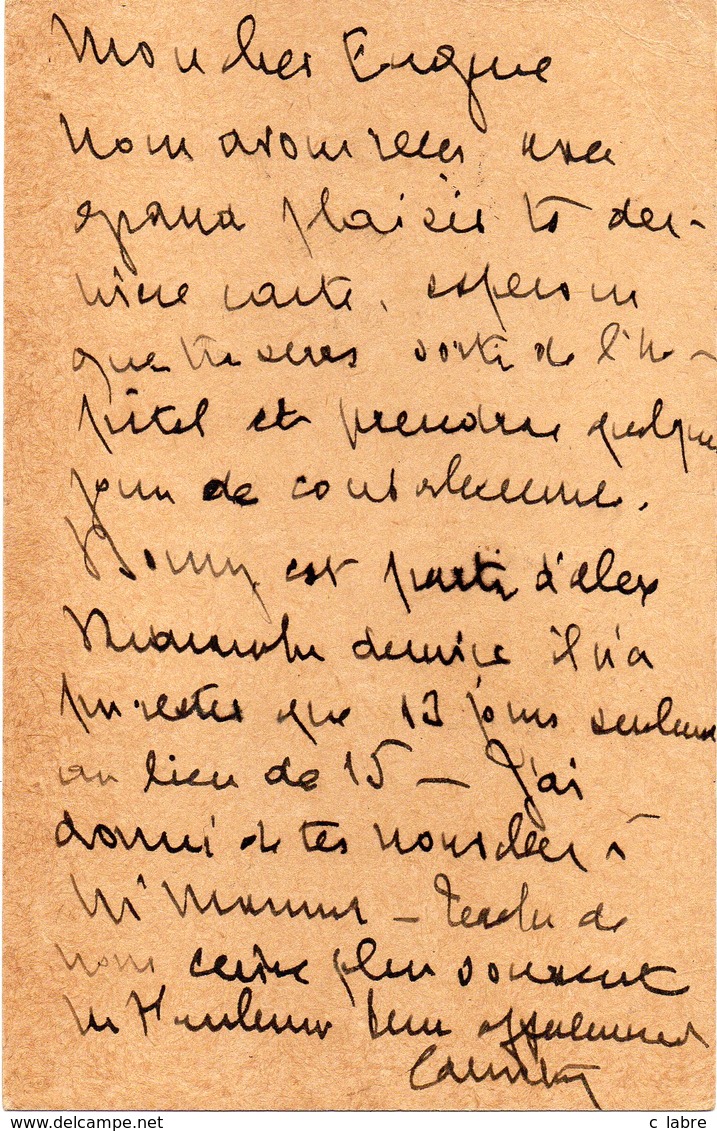 Mon cher Eugène
Nous avons reçu avec
grand plaisir ta der-
nière carte, espérons
que tu seras sorti de l'hô-
pital et prendras quelques
jours de convalescence.
est parti d'alex
dernier il n'a
pu rester que 13 jours seulement
au lieu de 15 — J'ai
donné de tes nouvelles à
Mr — Tache de
nous écrire plus souvent
bien affectueusement
c labre